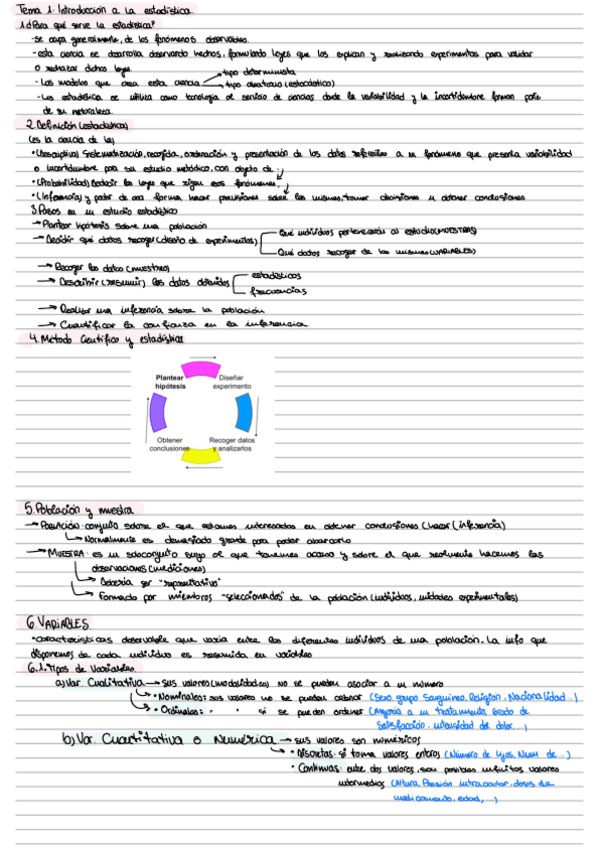 Tema 1: Introducción a la estadística
1.¿Para qué sirve la estadística?
-se ocupa generalmente, de los fenómenos observables.
-esta ciencia se desarrolla observando hechos, formulando leyes que los explican y realizando experimentos para validar
o rechazar dichas leyes.
- Los modelos que crea esta ciencia → tipo determinista
→ tipo aleatorio (estocástico)
-La estadística se utiliza como tecnología al servicio de ciencias donde la variabilidad y la incertidumbre forman parte
de su naturaleza.
2.Definición (estadística)
(es la ciencia de la)
•(Descriptiva) Sistematización, recogida, ordenación y presentación de los datos referentes a un fenómeno que presenta variabilidad
o incertidumbre para su estudio metódico, con objeto de
•(Probabilidad) Deducir las leyes que rigen esos fenómenos,
•(Inferencia) y poder de esa forma hacer previsiones sobre los mismos, tomar decisiones u obtener conclusiones
3.Pasos en un estudio estadístico
→ Plantear hipótesis sobre una población
→ Decidir qué datos recoger (diseño de experimentos)
Qué individuos pertenecerán al estudio (MUESTRAS)
Qué datos recoger de los mismos (VARIABLES)
→ Recoger los datos (muestreo)
→ Describir (resumir) los datos obtenidos
estadísticos
frecuencias
→ Realizar una inferencia sobre la población
→ Cuantificar la confianza en la inferencia
4. Método Científico y estadística
Plantear hipótesis
Diseñar experimento
Obtener conclusiones
Recoger datos y analizarlos
5.Población y muestra
→ POBLACIÓN: conjunto sobre el que estamos interesados en obtener conclusiones (hacer inferencia)
↳ Normalmente es demasiado grande para poder abarcarlo
→ MUESTRA: es un subconjunto suyo al que tenemos acceso y sobre el que realmente hacemos las
observaciones (mediciones)
↳ Debería ser "representativo"
↳ Formado por miembros "seleccionados" de la población (individuos, unidades experimentales)
6.VARIABLES
•característica observable que varía entre los diferentes individuos de una población. La info que
disponemos de cada individuo es resumida en variables
6.1.Tipos de Variables.
a)Var Cualitativa → sus valores (modalidades) no se pueden asociar a un número
• Nominales: sus valores no se pueden ordenar (Sexo, grupo Sanguíneo, Religión, Nacionalidad...)
• Ordinales: " " si se pueden ordenar (Mejoría a un tratamiento, Grado de
Satisfacción, intensidad del dolor,...)
b)Var. Cuantitativa o Numérica → sus valores son numéricos
• Discretas: si toma valores enteros (Número de hijos, Num de...)
• Continuas: entre dos valores, son posibles infinitos valores
intermedios (Altura, Presión intraocular, dosis de
medicamento, edad,...)